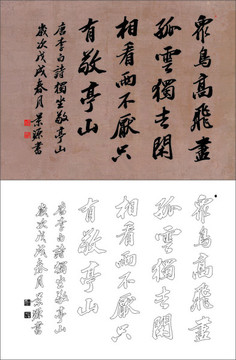 眾鳥高飛盡
孤雲獨去閑
相看兩不厭只
有敬亭山
唐李白詩獨坐敬亭山
歲次戊戌春月景源書
眾鳥高飛盡
孤雲獨去閑
相看兩不厭只
有敬亭山
唐李白詩獨坐敬亭山
歲次戊戌春月景源書